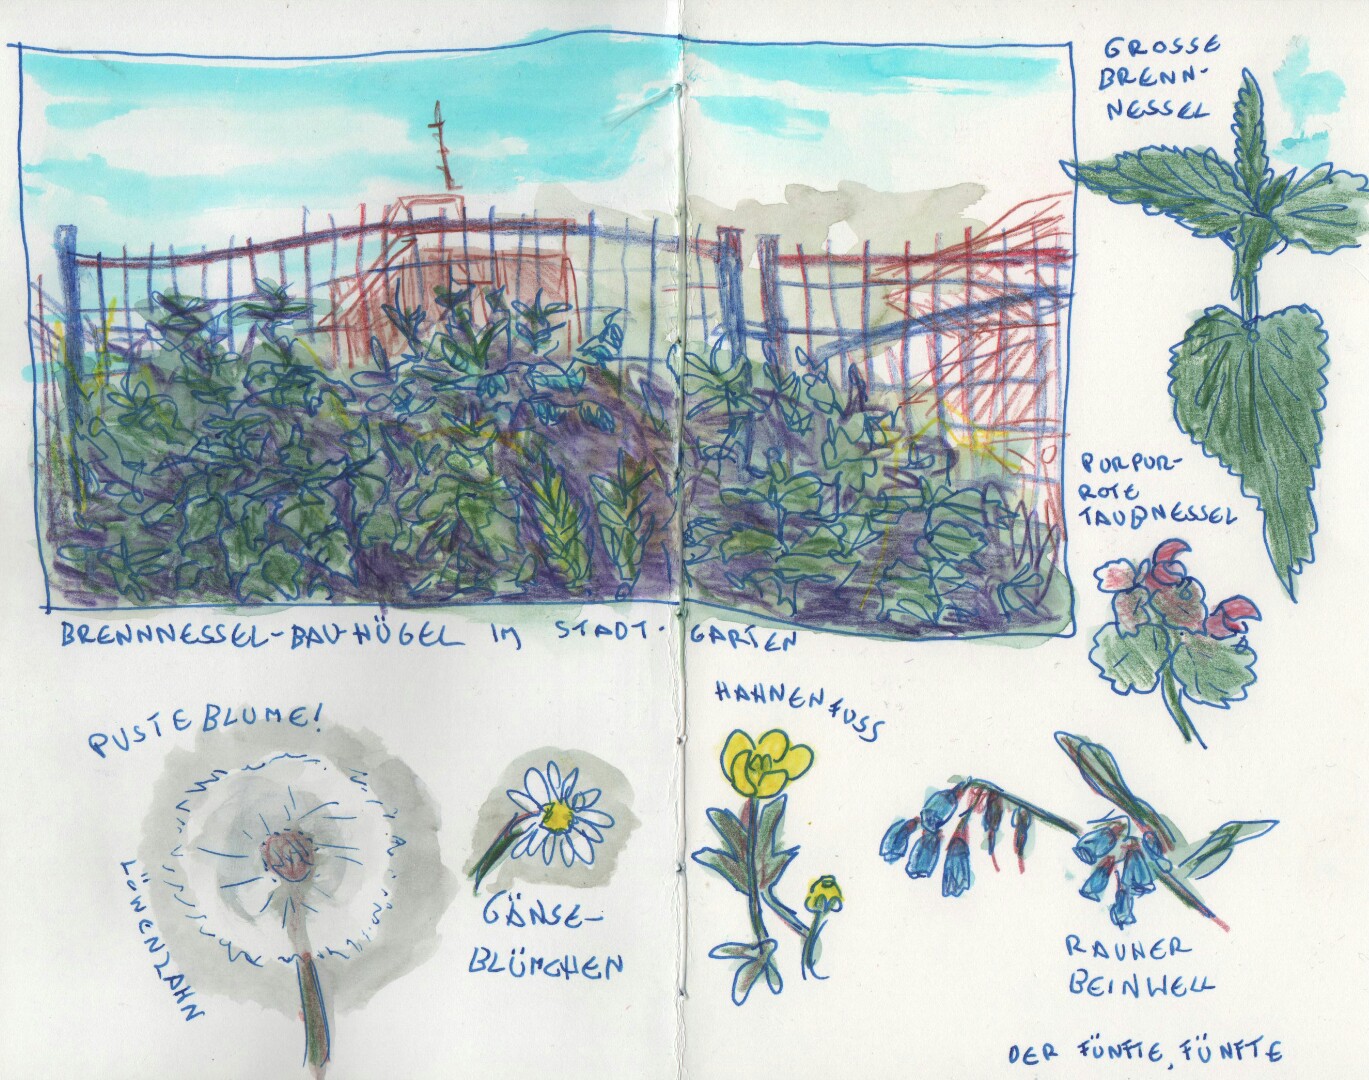 GROSSE
BRENN-
NESSEL
PURPUR-
ROTE
TAUBNESSEL
BRENNNESSEL-BAU-HÜGEL IM STADT-GARTEN
PUSTEBLUME!
LÖWENZAHN
GÄNSE-
BLÜMCHEN
HAHNENFUSS
RAUHER
BEINWELL
DER FÜNFTE, FÜNFTE